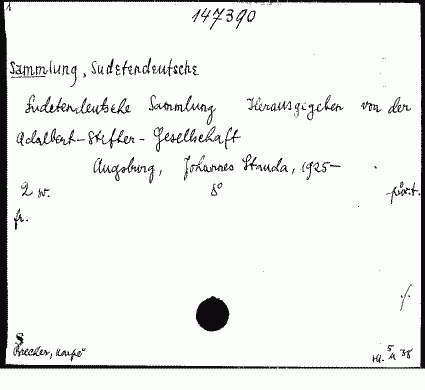 1
147390
Sammlung, Sudetendeutsche
Sudetendeutsche Sammlung Herausgegeben von der
Adalbert-Stifter-Gesellschaft
Augsburg, Johannes Stauda, 1925-
2 w. 8°
fr.
S